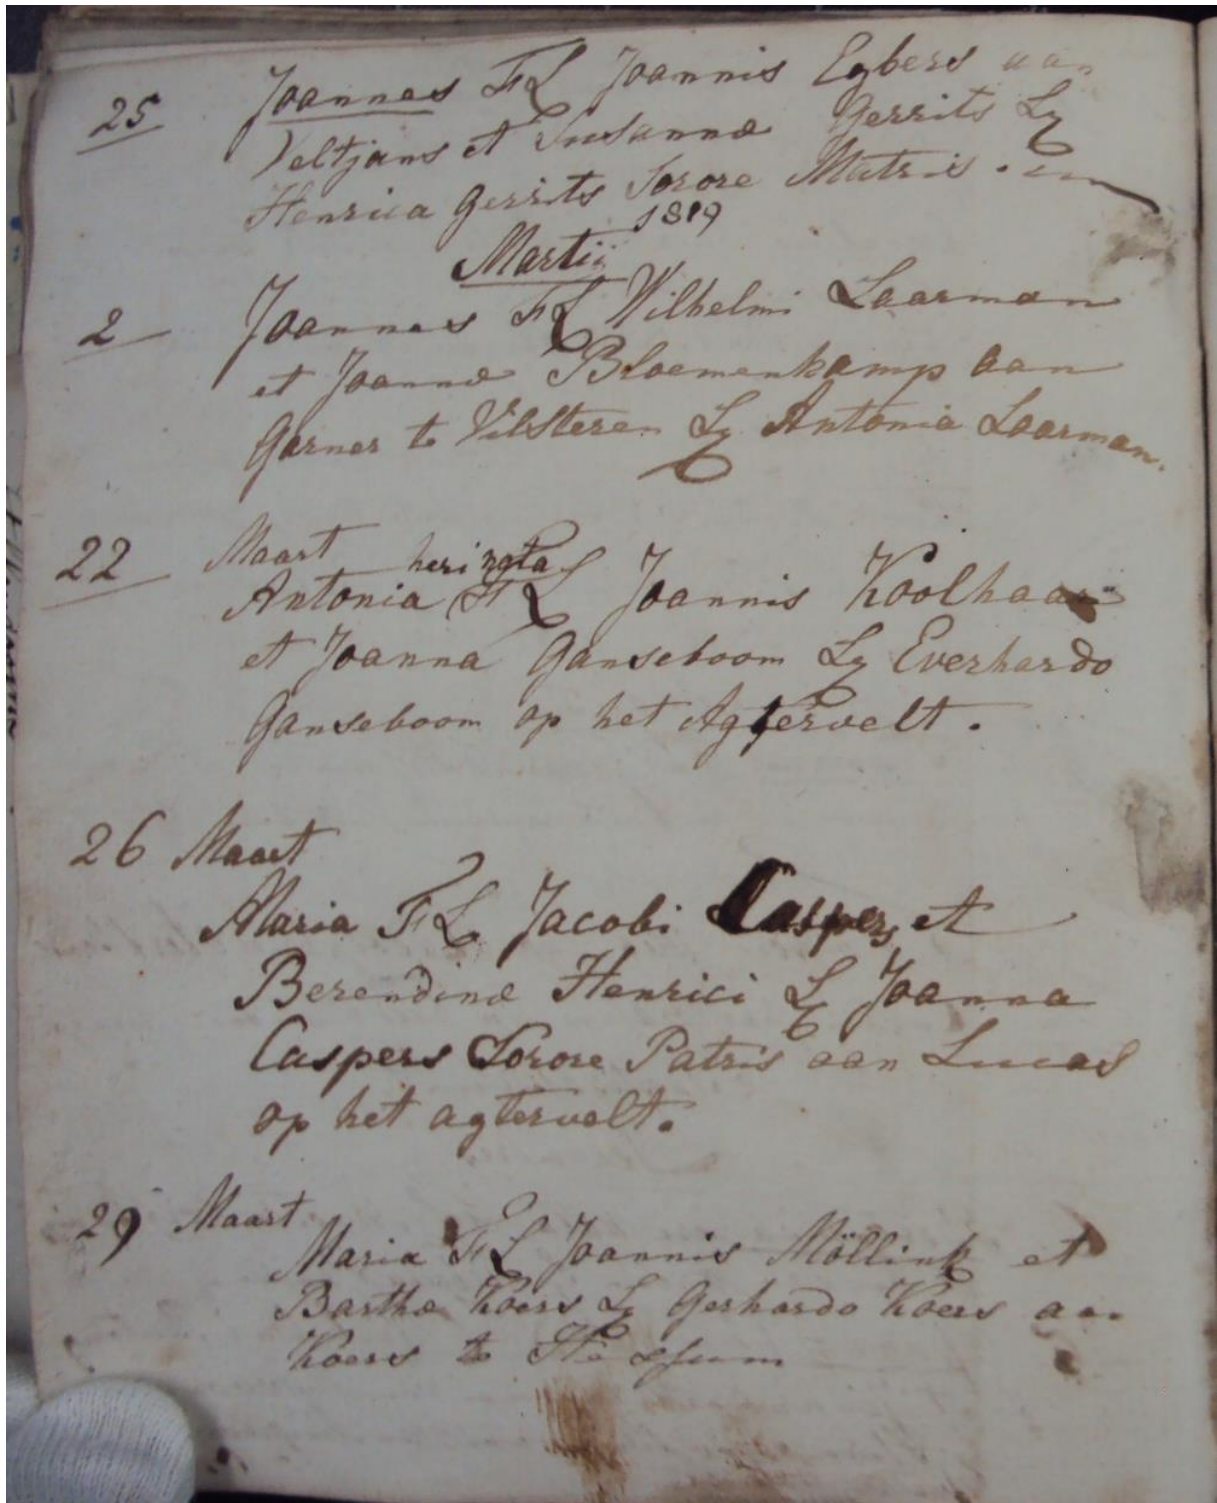 25 Joannes FL Joannis Egbers aan
Veltjans et Susannæ Gerrits Lq
Henrica Gerrits Sorore Matris.
1819
Martij
2 Joannes FL Wilhelmi Laarman
et Joannæ Bloemenkamp aan
Garner te Vilsteren Lq Antonia Laarman.
22 Maart heringta
Antonia FL Joannis Koolhaas
et Joanna Ganseboom Lq Everhardo
Ganseboom op het Agtervelt.
26 Maart
Maria FL Jacobi Caspers et
Berendinæ Henrici Lq Joanna
Caspers Sorore Patris aan Lucas
op het agtervelt.
29 Maart
Maria FL Joannis Möllink et
Barthæ Koers Lq Gerhardo Koers aan
Koers te